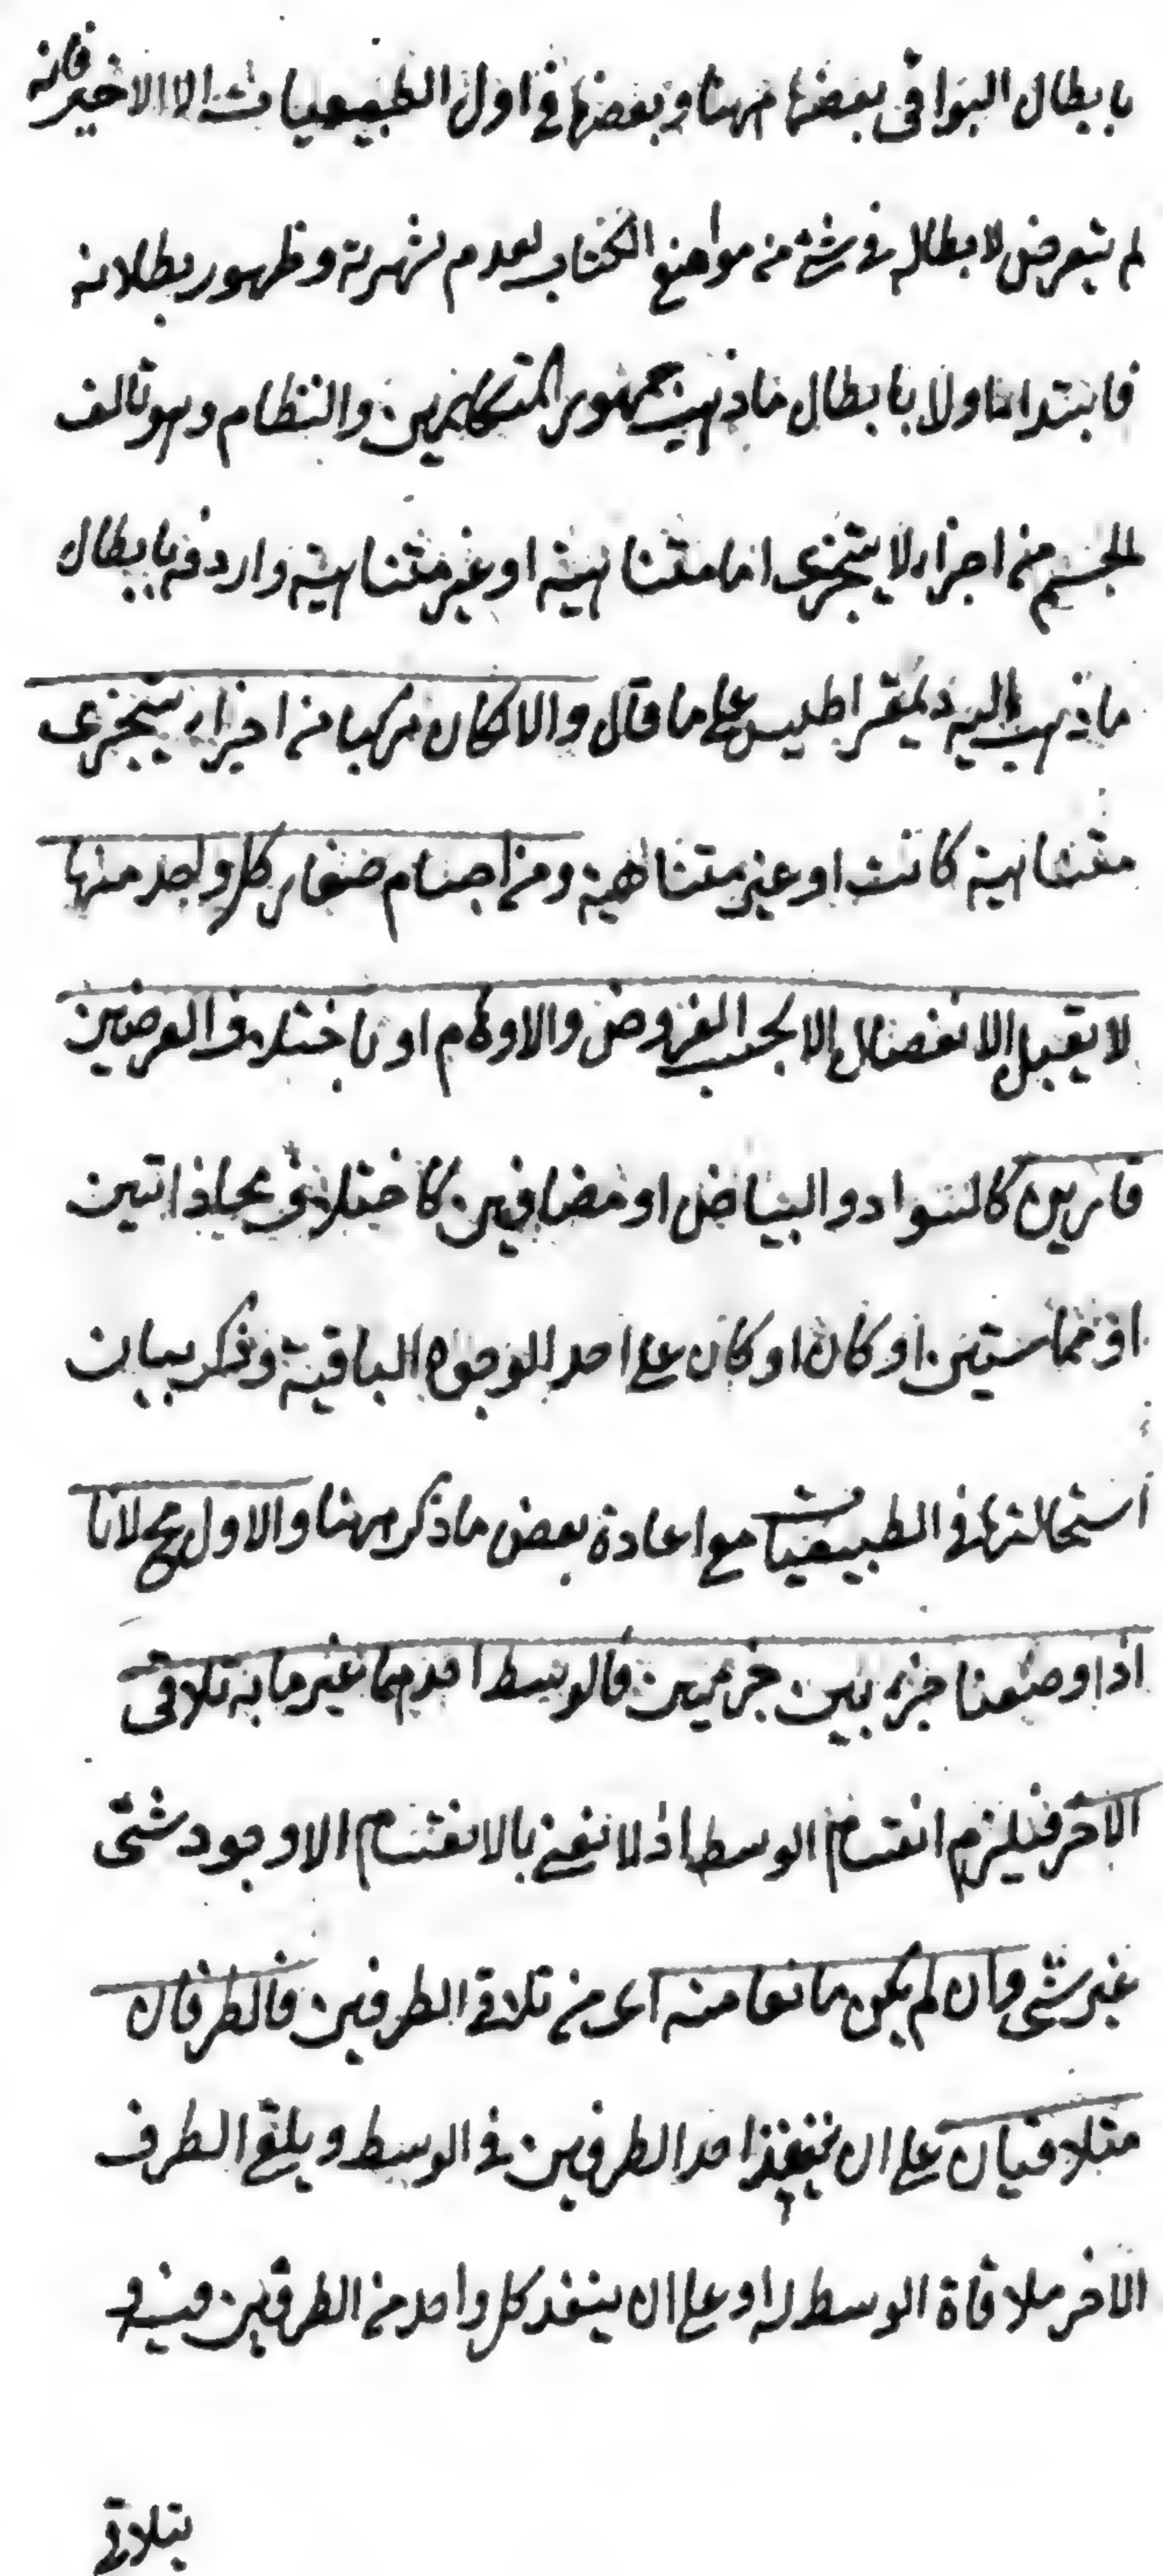 بابطال البواقى بعضها ههنا وبعضها فى اول الطبيعيات الا الاخير فانه
لم يتعرض لابطاله فى شئ من مواضع الكتاب لعدم شهرته وظهور بطلانه
فابتدا اولا بابطال ماذهب جمهور المتكلمين والنظام وهو تالف
الجسم من اجزاء لا يتجزى اما متناهية او غير متناهية واردفه بابطال
ماذهب اليه ذيمقراطيس على ما قال والا لكان مركبا من اجزاء يتجزى
متناهية كانت او غير متناهية ومن اجسام صغار كل واحد منها
لا يقبل الانفصال الا بحسب الفروض والاوهام او باختلاف العرضين
قارين كالسواد والبياض او مضافين كاختلاف محاذاتين
او مماستين او كان او كان على احد الوجوه الباقية وذكر بيان
استحالتها فى الطبيعيات مع اعادة بعض ماذكر ههنا والاول مح لانا
اذا وضعنا جزء بين جزئين فالوسط احدهما غير ما به تلاقى
الآخر فيلزم انقسام الوسط اذ لا نعنى بالانقسام الا وجود شئى
غير شئى وان لم يكن مانعا منه اى من تلاقى الطرفين فالطرفان
متلاقيان على ان ينفذ احد الطرفين فى الوسط ويلقى الطرف
الاخر ملاقاة الوسط له او على ان ينفذ كل واحد من الطرفين فيه و
يتلاقى